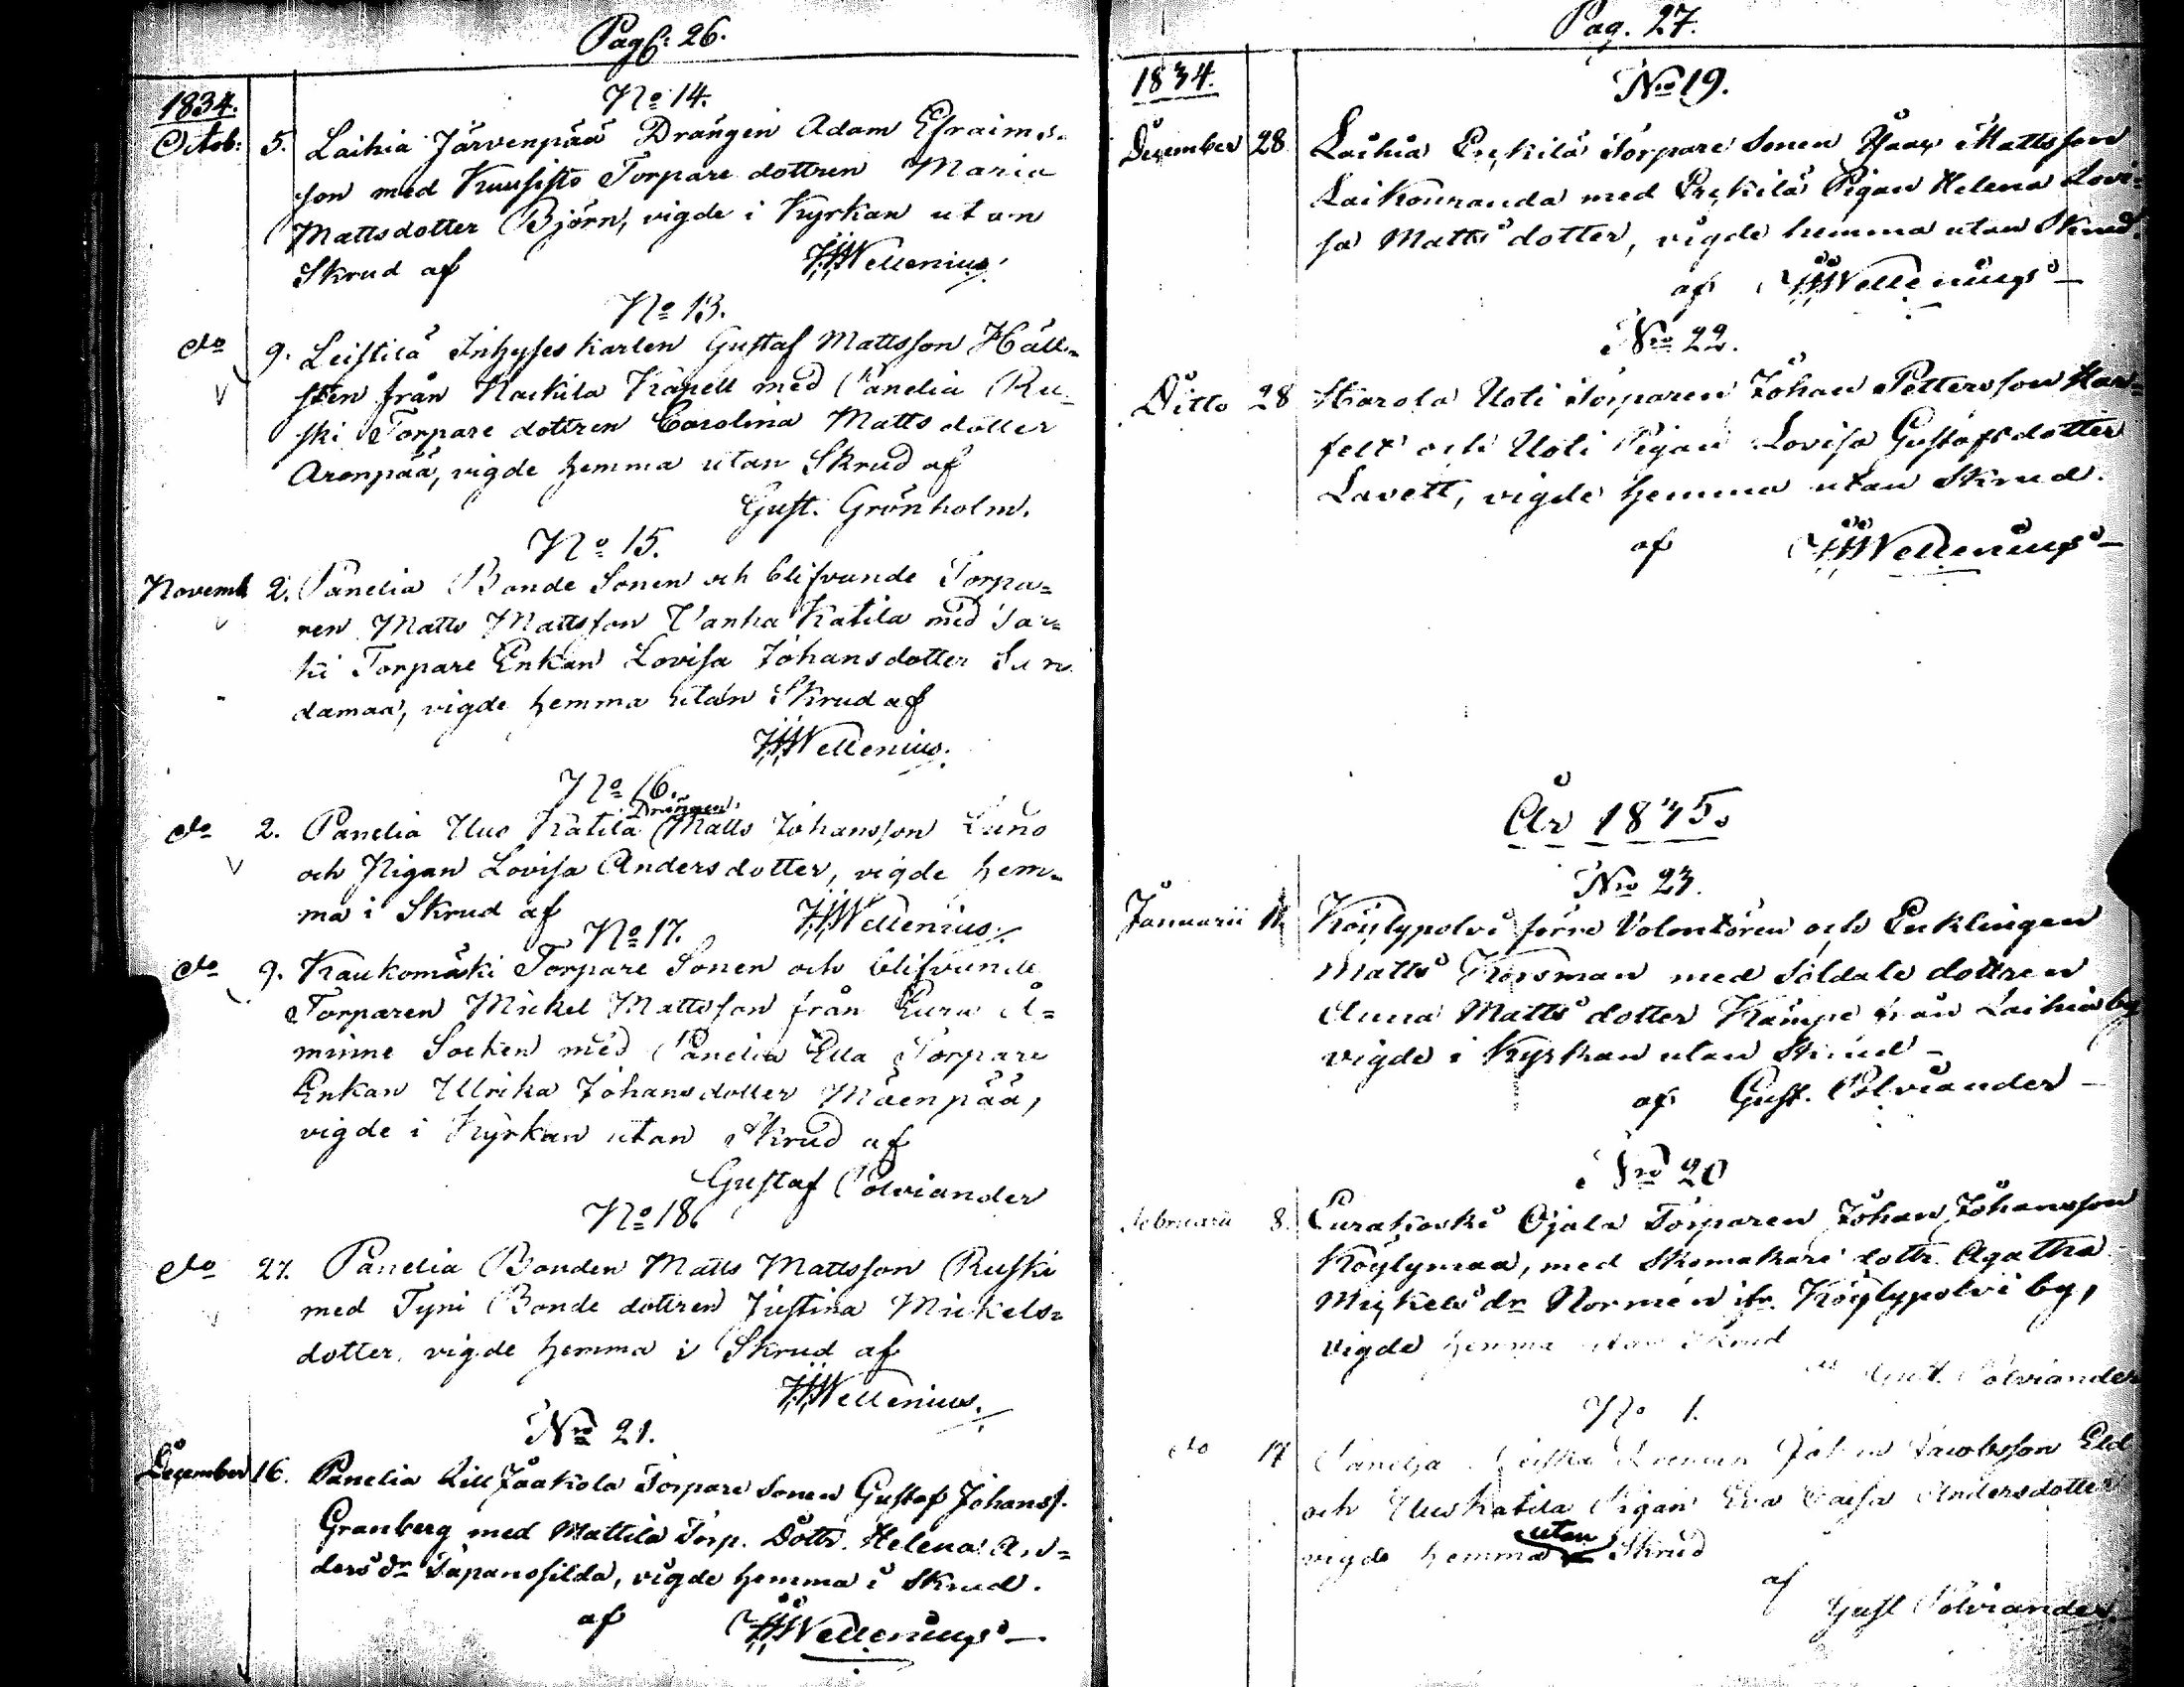 Pag: 26.
1834.
No 14.
Octob: 5. Laihia Järvenpää Drängen Adam Efraims-
son med Kuusisto Torpare dottren Maria
Mattsdotter Björn, vigde i Kyrkan utan
Skrud af HHWellenius.
No 13.
do 9. Leistilä Inhyses karlen Gustaf Mattsson Häll-
sten från Kapell med Panelia Ru-
ski Torpare dottren Carolina Matts dotter
Arenpää, vigde hemma utan Skrud af
Gust. Grönholm.
No 15.
Novemb 2. Panelia Bonde Sonen och blifvande Torpa=
ren Matts Mattsson Vanha Katila med
Torpare Enkan Lovisa Johansdotter
damaa, vigde hemma utan Skrud af
HHWellenius.
No 16.
Drängen
do 2. Panelia Uus Katila Matts Johansson
och Pigan Lovisa Andersdotter, vigde hem-
ma i Skrud af HHWellenius.
No 17.
do 9. Kaukomäki Torpare Sonen och blifvande
Torparen Mickel Mattsson från Eura Å=
minne Socken med Panelia Torpare
Enkan Ulrika Johansdotter Mäenpää,
vigde i Kyrkan utan Skrud af
Gustaf Polviander
No 18.
do 27. Panelia Bonden Matts Mattsson Ruski
med Tyni Bonde dottren Justina Mickels=
dotter, vigde hemma i Skrud af
HHWellenius.
No 21.
December 16. Panelia Lill Jaakola Torpare Sonen Gustaf Johanss.
Granberg med Mattila Torp. Dottr. Helena An=
ders dr Tapanosilda, vigde hemma i Skrud.
af HHWellenius
Pag. 27.
1834.
No 19.
December 28 Laihia Torpare Sonen Isaac Mattsson
Laikouranda med Pigan Helena Lovi-
sa Matts dotter, vigde hemma utan Skrud.
af HHWellenius
No 22.
Ditto 28 Harola Uoti Torparen Johan Pettersson Har-
felt och Uoti Pigan Lovisa Gustafsdotter
Lavett, vigde hemma utan Skrud.
af HHWellenius
År 1835.
No 23.
Januarii Köylypolvi förre Volontören och Enklingen
Matts Korsman med Soldate dottren
Anna Matts dotter Kämpe från Laihia by
vigde i Kyrkan utan Skrud
af Gust. Polviander
No 20
Februarii 8. Eurakoski Ojala Torparen Johan Johansson
Köylymaa, med Skomakare dottr. Agatha
Mickels dr Normén ifr. Köylypolvi by,
vigde hemma utan Skrud
af Gust. Polviander
No 1.
do 17 Panelia Johan Jacobsson
och Uus Katila Pigan Eva Caisa Andersdotter
utan
vigde hemma Skrud
af
Gust Polviander.